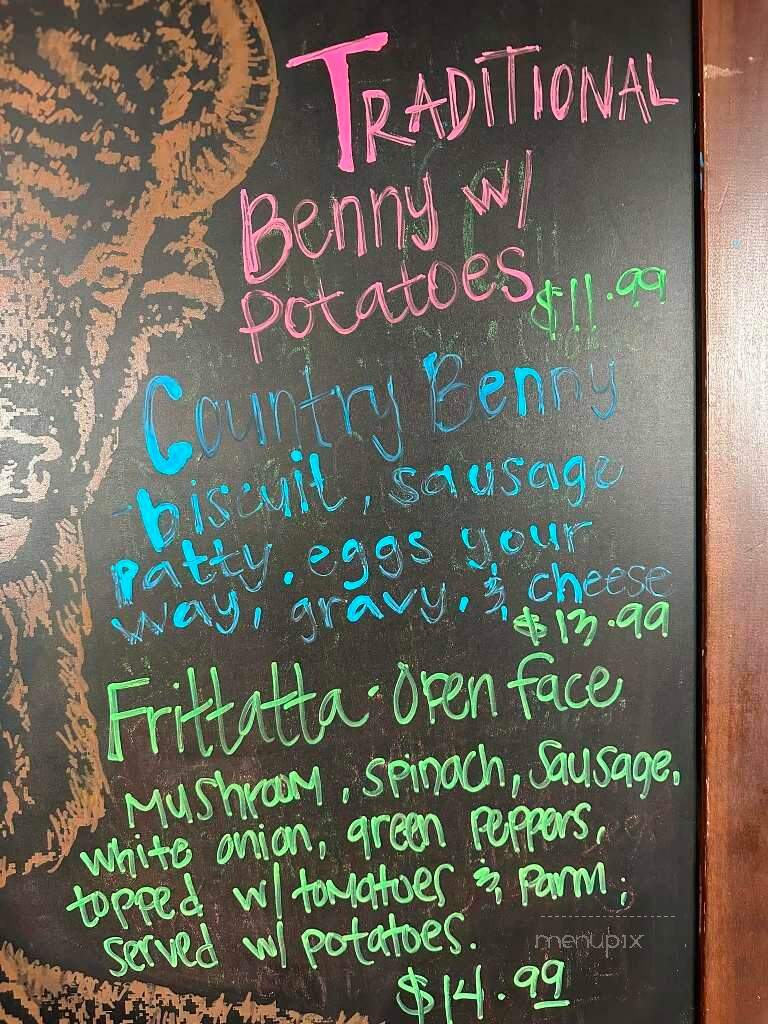 TRADITIONAL
Benny w/
Potatoes $11.99
Country Benny
-biscuit, sausage
Patty, eggs your
way, gravy, & cheese
$13.99
Frittatta - Open face
Mushroom, spinach, sausage,
white onion, green peppers,
topped w/ tomatoes & parm;
served w/ potatoes.
menupix
$14.99